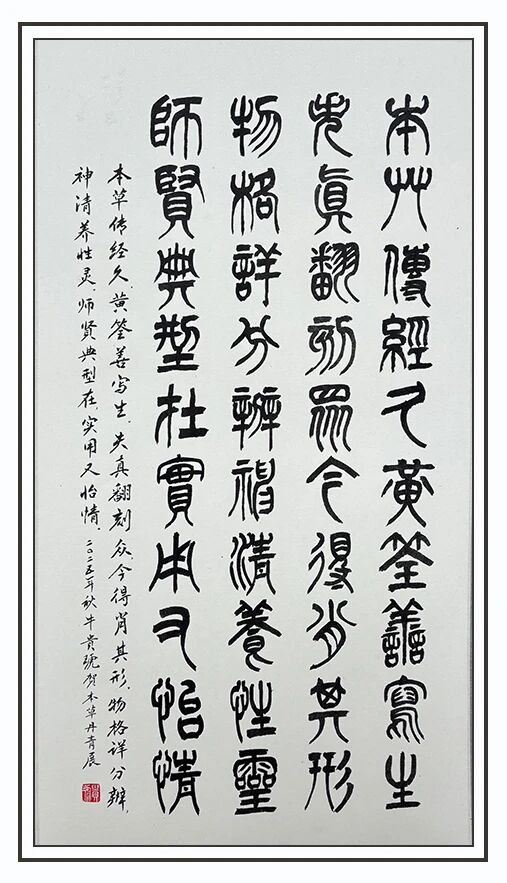 本艸傳經久黃筌譱寫生
失眞翻刻眾今得肖其形
物格詳分辦神清養性靈
師賢典型在實用又怡情
本草传经久，黄筌善写生，失真翻刻众，今得肖其形，物格详分辨，
神清养性灵，师贤典型在，实用又怡情，二〇二五年秋牛贵琥贺本草丹青展